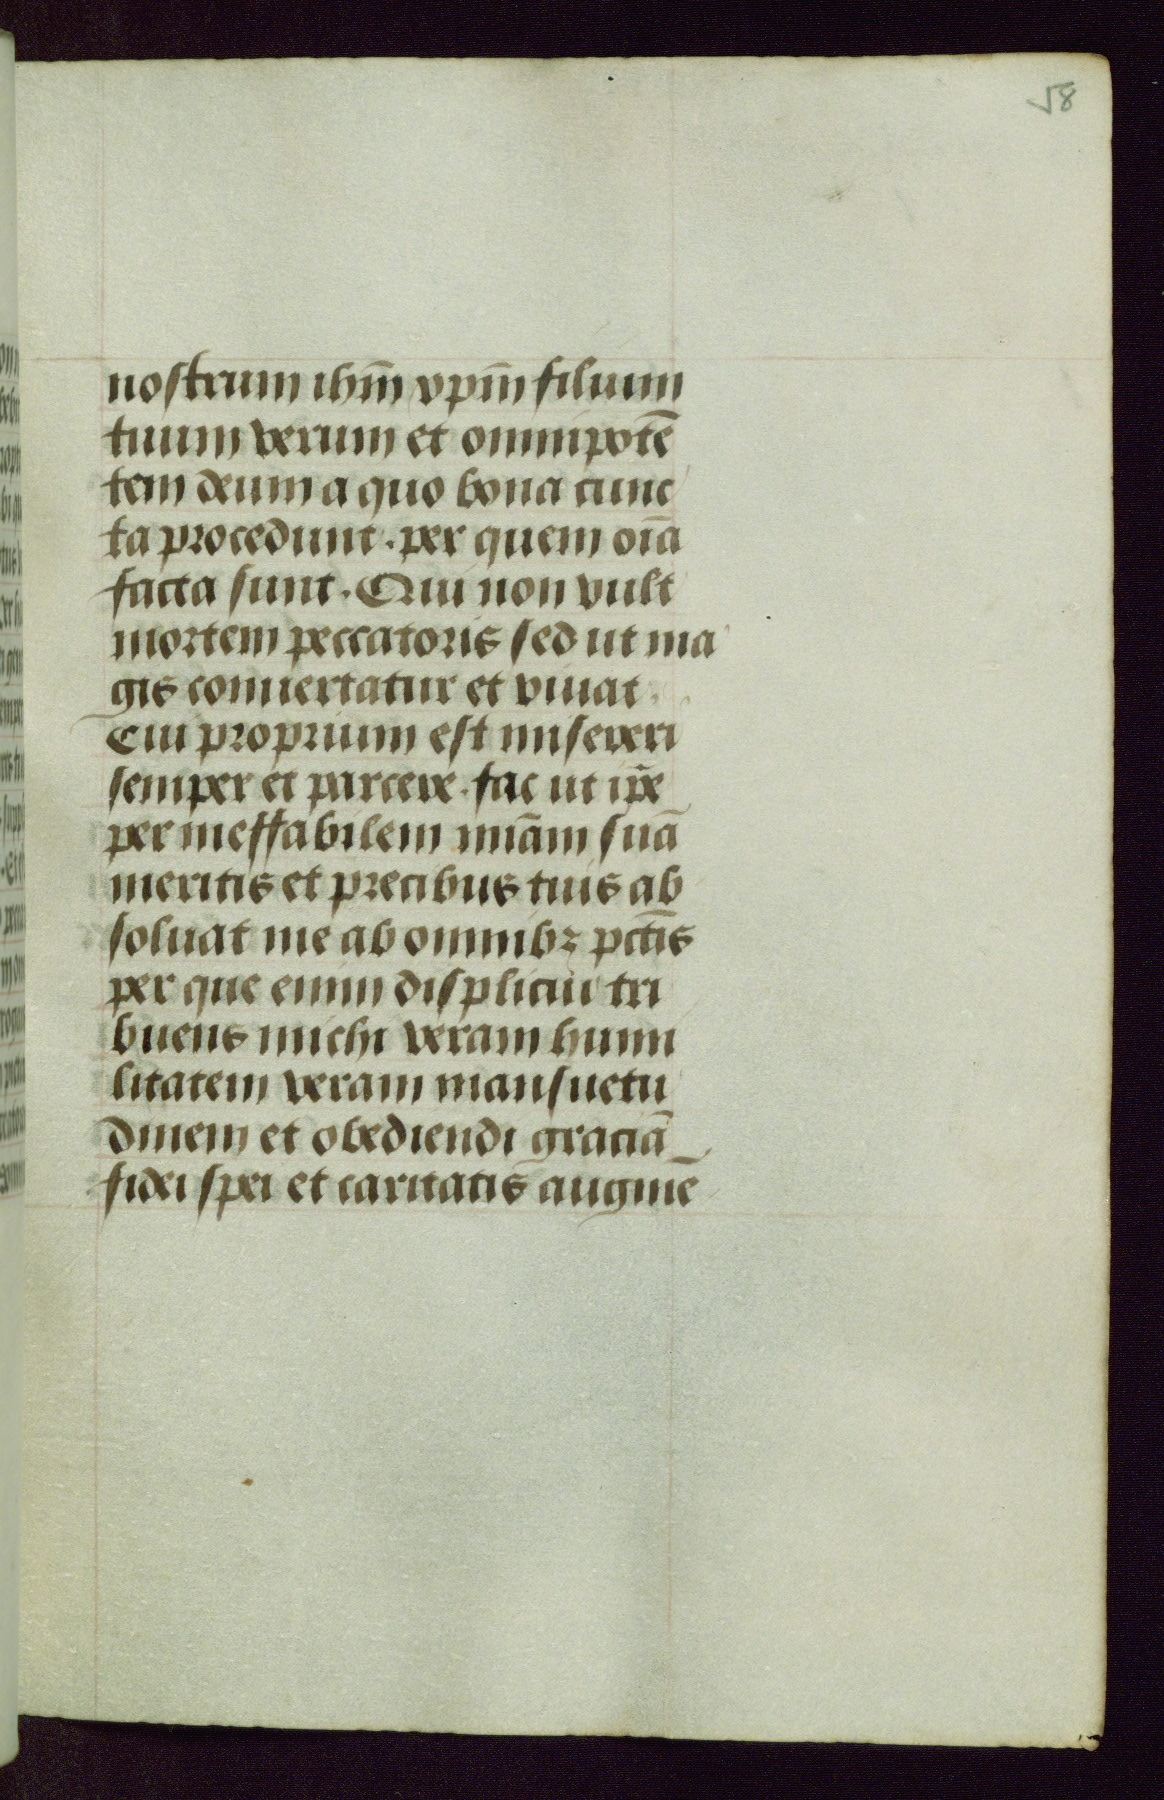 58
nostrum ihm̄ xpm̄ filium
tuum verum et omnipotē
tem deum a quo bona cunc
ta procedunt. per quem oīa
facta sunt. Qui non vult
mortem peccatoris sed ut ma
gis conuertatur et viuat.
Cui proprium est misereri
semper et parcere. fac ut ip̄e
per ineffabilem mīam suā
meritis et precibus tuis ab
soluat me ab omnibꝫ pctīs
per que enim displicui tri
buens michi veram humi
litatem veram mansuetu
dinem et obediendi graciā
fidei spei et caritatis augmē